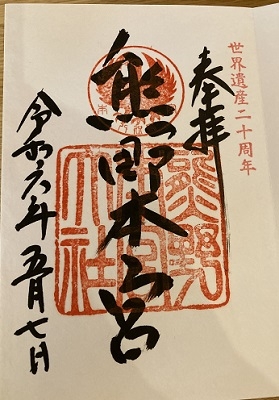 世界遺産二十周年
奉拝
熊野本宮
熊野
本宮
大社
令和六年五月七日